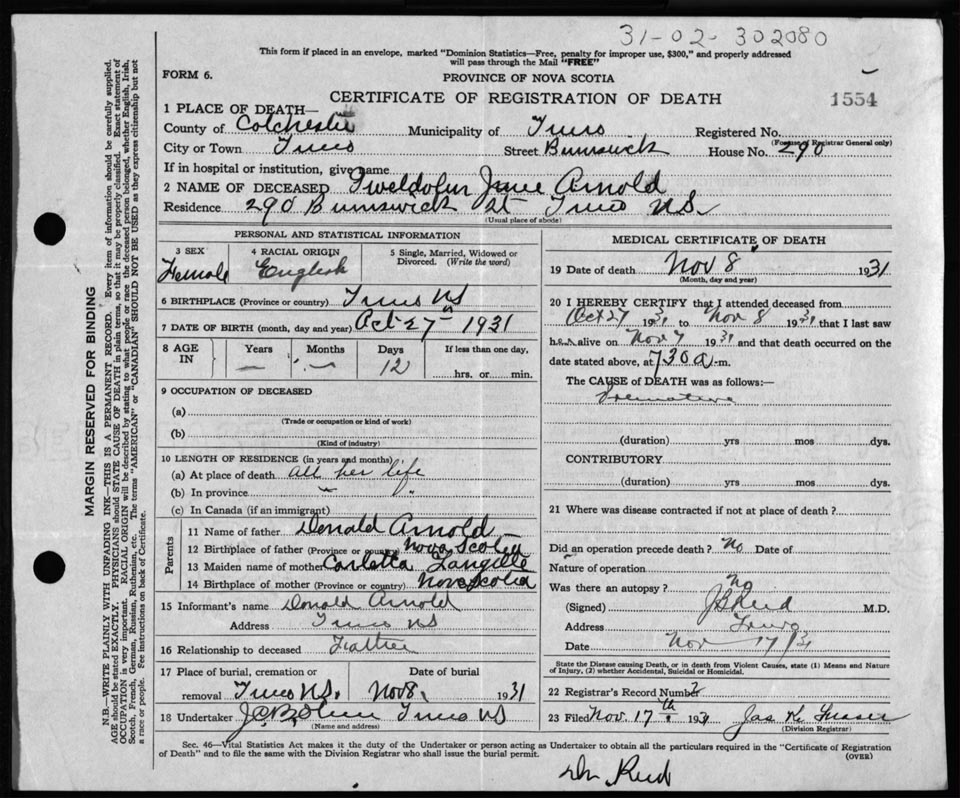 31-02-302080
This form if placed in an envelope, marked "Dominion Statistics—Free, penalty for improper use, $300," and properly addressed
will pass through the Mail "FREE"
FORM 6.
PROVINCE OF NOVA SCOTIA
CERTIFICATE OF REGISTRATION OF DEATH
1554
1 PLACE OF DEATH—
County of Colchester Municipality of Truro Registered No.
(For use of Registrar General only)
City or Town Truro Street Brunswick House No. 290
If in hospital or institution, give name
2 NAME OF DECEASED June Arnold
Residence 290 Brunswick St Truro N.S.
(Usual place of abode)
PERSONAL AND STATISTICAL INFORMATION
3 SEX
Female
4 RACIAL ORIGIN
English
5 Single, Married, Widowed or
Divorced. (Write the word)
6 BIRTHPLACE (Province or country) Truro NS
7 DATE OF BIRTH (month, day and year) Oct 27th 1931
8 AGE
IN
Years
—
Months
—
Days
12
If less than one day,
hrs. or min.
9 OCCUPATION OF DECEASED
(a)
(Trade or occupation or kind of work)
(b)
(Kind of industry)
10 LENGTH OF RESIDENCE (in years and months)
(a) At place of death all her life
(b) In province " "
(c) In Canada (if an immigrant)
Parents
11 Name of father Donald Arnold
12 Birthplace of father (Province or country) Nova Scotia
13 Maiden name of mother Carletta Langille
14 Birthplace of mother (Province or country) Nova Scotia
15 Informant's name Donald Arnold
Address Truro NS
16 Relationship to deceased Father
17 Place of burial, cremation or Date of burial
removal Truro N.S. Nov 8, 1931
18 Undertaker Truro NS
(Name and address)
MEDICAL CERTIFICATE OF DEATH
19 Date of death Nov 8 1931
(Month, day and year)
20 I HEREBY CERTIFY that I attended deceased from
Oct 27 1931 to Nov 8 1931 that I last saw
h alive on Nov 7 1931 and that death occurred on the
date stated above, at 730 a-m.
The CAUSE of DEATH was as follows:—
Premature
(duration) yrs mos dys.
CONTRIBUTORY
(duration) yrs mos dys.
21 Where was disease contracted if not at place of death?
Did an operation precede death? No Date of
Nature of operation
Was there an autopsy? No
(Signed) Reid M.D.
Address Truro
Date Nov 17/31
State the Disease causing Death, or in death from Violent Causes, state (1) Means and Nature
of Injury, (2) whether Accidental, Suicidal or Homicidal.
22 Registrar's Record Number 2
23 Filed Nov. 17th 1931 Jas K Fraser
(Division Registrar)
Sec. 46—Vital Statistics Act makes it the duty of the Undertaker or person acting as Undertaker to obtain all the particulars required in the "Certificate of Registration
of Death" and to file the same with the Division Registrar who shall issue the burial permit.
(OVER)
Dr Reid
MARGIN RESERVED FOR BINDING
N.B.—WRITE PLAINLY WITH UNFADING INK—THIS IS A PERMANENT RECORD. Every item of information should be carefully supplied.
AGE should be stated EXACTLY. PHYSICIANS should STATE CAUSE OF DEATH in plain terms, so that it may be properly classified. Exact statement of
OCCUPATION is very important. RACIAL ORIGIN will be described by stating to what people or race the deceased person belonged, whether English, Irish,
Scotch, French, German, Russian, Ruthenian, etc. The terms "AMERICAN" or "CANADIAN" SHOULD NOT BE USED as they express citizenship but not
a race or people. See instructions on back of Certificate.